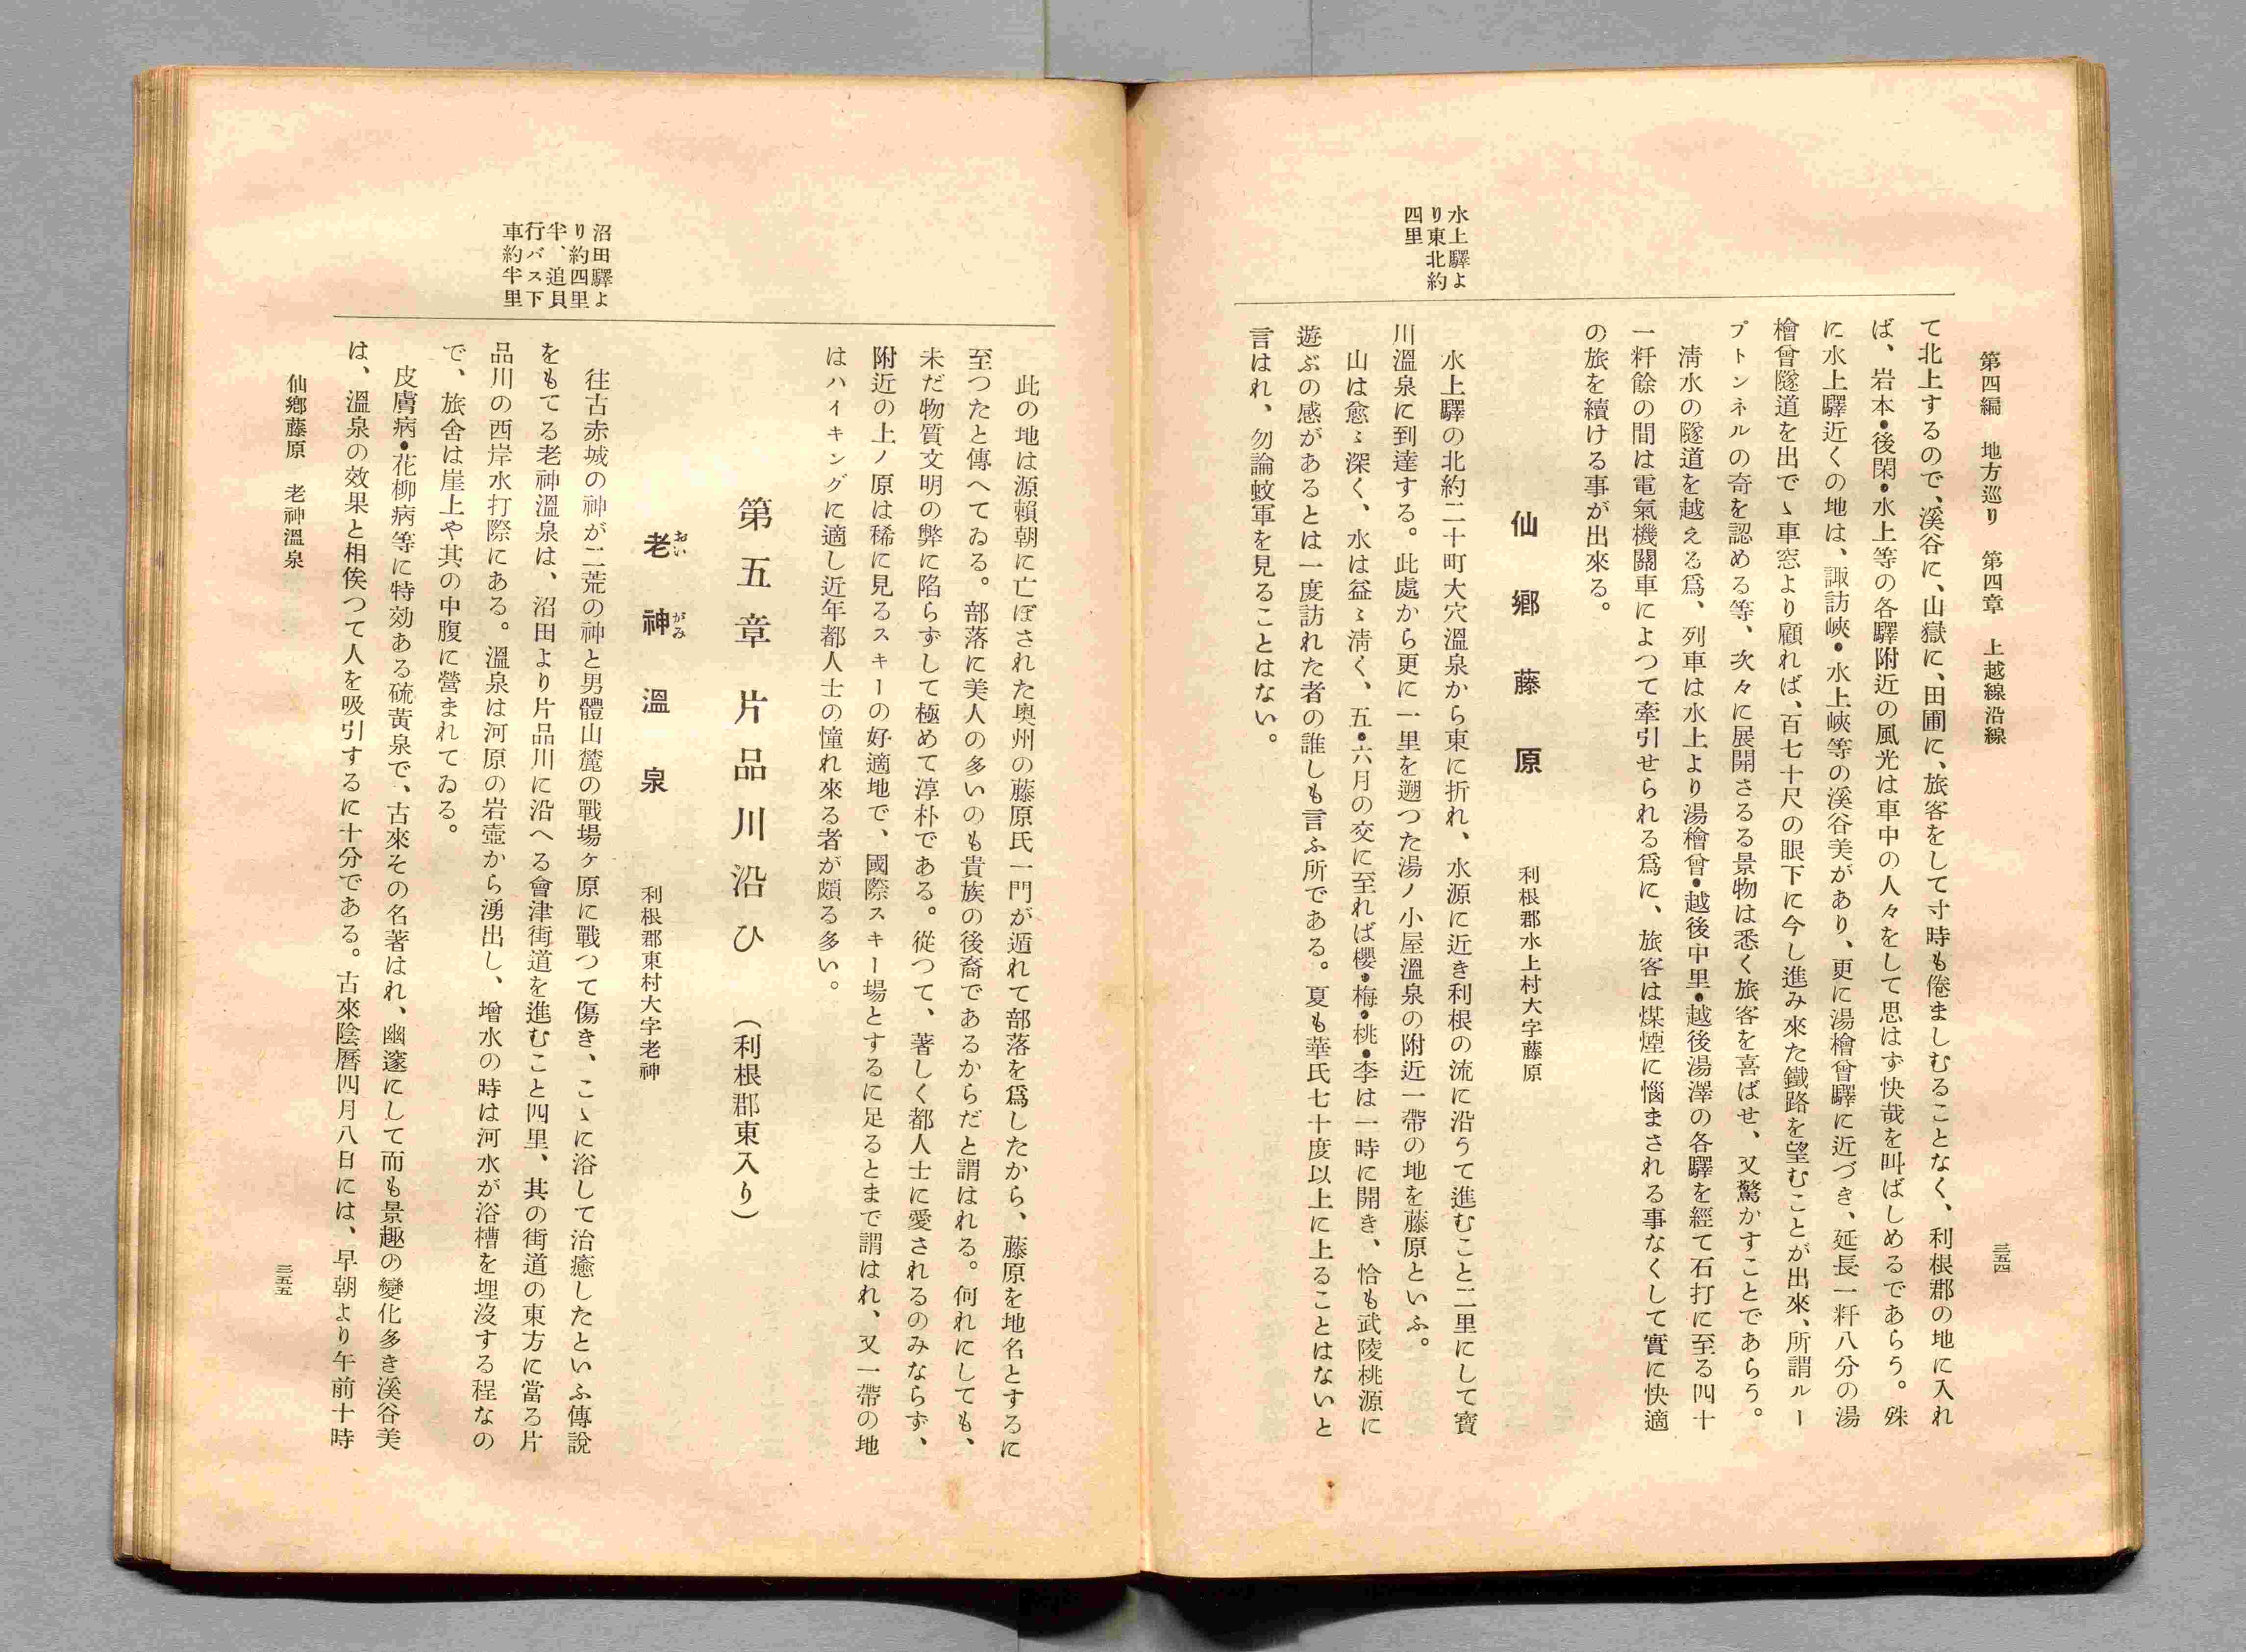 第四編 地方巡り 第四章 上越線沿線
三五四
て北上するので、溪谷に、山嶽に、田圃に、旅客をして寸時も倦ましむることなく、利根郡の地に入れ
ば、岩本・後閑・水上等の各驛附近の風光は車中の人々をして思はず快哉を叫ばしめるであらう。殊
に水上驛近くの地は、諏訪峽・水上峽等の溪谷美があり、更に湯檜曾驛に近づき、延長一粁八分の湯
檜曾隧道を出でゝ車窓より顧れば、百七十尺の眼下に今し進み來た鐵路を望むことが出來、所謂ルー
プトンネルの奇を認める等、次々に展開さるる景物は悉く旅客を喜ばせ、又驚かすことであらう。
淸水の隧道を越える爲、列車は水上より湯檜曾・越後中里・越後湯澤の各驛を經て石打に至る四十
一粁餘の間は電氣機關車によつて牽引せられる爲に、旅客は煤煙に惱まされる事なくして實に快適
の旅を續ける事が出來る。
仙鄕藤原
利根郡水上村大字藤原
水上驛よ
り東北約
四里
水上驛の北約二十町大穴溫泉から東に折れ、水源に近き利根の流に沿うて進むこと二里にして寶
川溫泉に到達する。此處から更に一里を遡つた湯ノ小屋溫泉の附近一帶の地を藤原といふ。
山は愈〻深く、水は益〻淸く、五・六月の交に至れば櫻・梅・桃・李は一時に開き、恰も武陵桃源に
遊ぶの感があるとは一度訪れた者の誰しも言ふ所である。夏も華氏七十度以上に上ることはないと
言はれ、勿論蚊軍を見ることはない。
此の地は源賴朝に亡ぼされた奥州の藤原氏一門が遁れて部落を爲したから、藤原を地名とするに
至つたと傳へてゐる。部落に美人の多いのも貴族の後裔であるからだと謂はれる。何れにしても、
未だ物質文明の弊に陷らずして極めて淳朴である。從つて、著しく都人士に愛されるのみならず、
附近の上ノ原は稀に見るスキーの好適地で、國際スキー場とするに足るとまで謂はれ、又一帶の地
はハイキングに適し近年都人士の憧れ來る者が頗る多い。
第五章 片品川沿ひ (利根郡東入り)
老神溫泉
おいがみ
利根郡東村大字老神
沼田驛よ
り約四里
半、追貝
行バス下
車約半里
往古赤城の神が二荒の神と男體山麓の戰場ヶ原に戰つて傷き、こゝに浴して治癒したといふ傳說
をもてる老神溫泉は、沼田より片品川に沿へる會津街道を進むこと四里、其の街道の東方に當る片
品川の西岸水打際にある。溫泉は河原の岩壺から湧出し、增水の時は河水が浴槽を埋沒する程なの
で、旅舍は崖上や其の中腹に營まれてゐる。
皮膚病・花柳病等に特効ある硫黃泉で、古來その名著はれ、幽邃にして而も景趣の變化多き溪谷美
は、溫泉の效果と相俟つて人を吸引するに十分である。古來陰曆四月八日には、早朝より午前十時
仙鄕藤原 老神溫泉
三五五